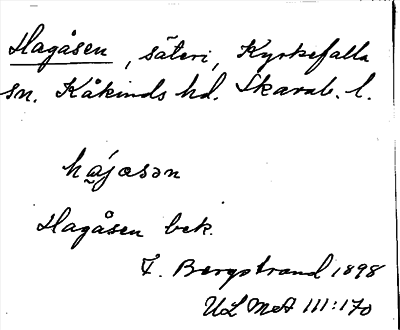 Hagåsen, säteri, Kyrkefalla
sn. Kåkinds hd. Skarab. l.
hájasən
Hagåsen bek.
F. Bergstrand 1898
ULMA 111:170